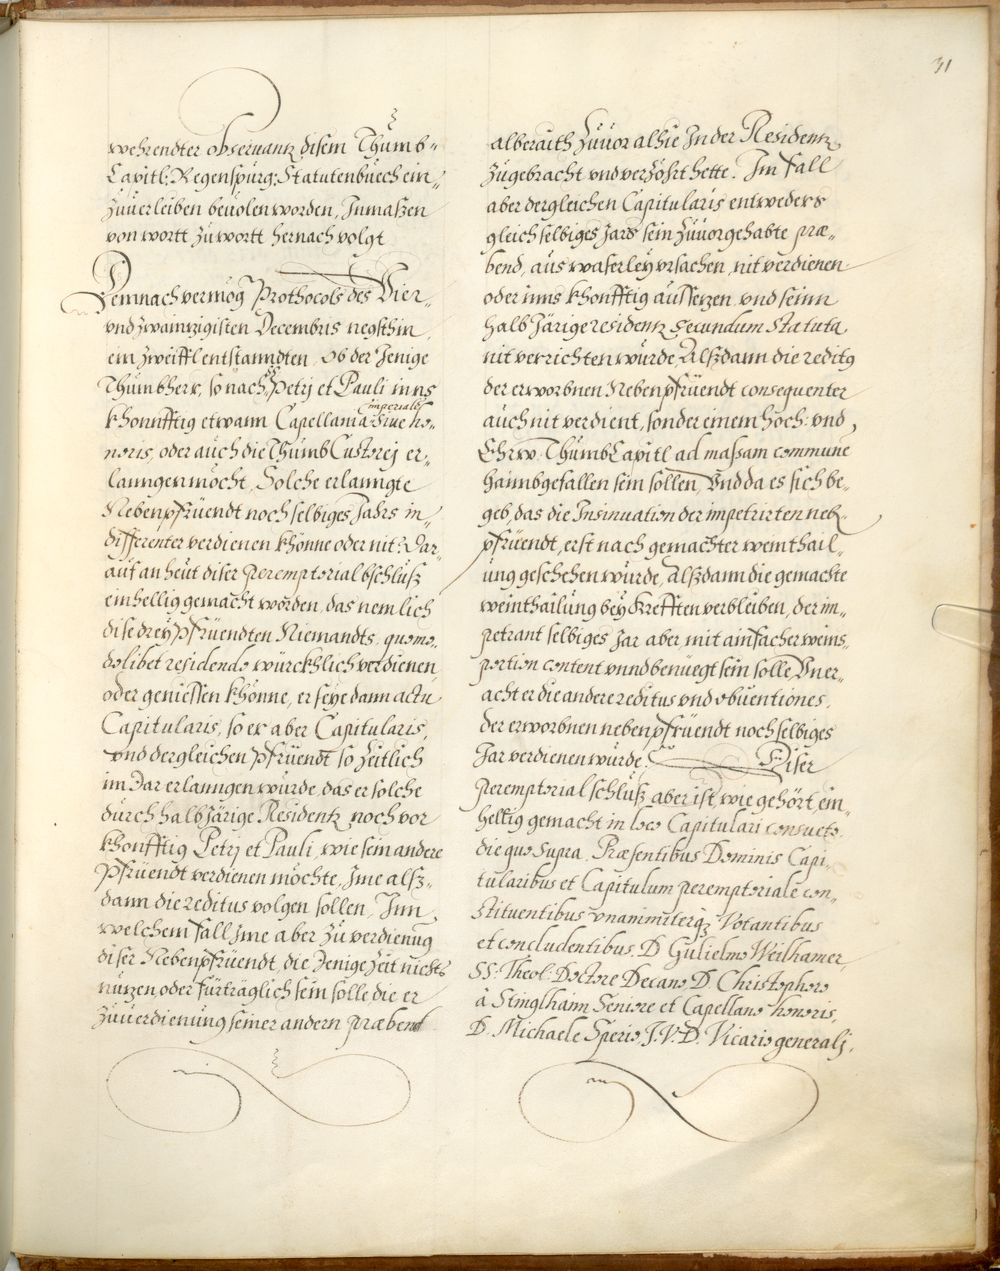 31
wehrendter obseruantz disem Thumb=
Capitl: Regenspurg: Statutenbuech ein=
zuuerleiben beuolen worden, Inmaßen
von wortt zu wortt hernach volgt
Demnach vermög Prothocols des Vier=
vnd zwaintzigisten Decembris negsthin
ein zweiffl entstanndten, ob der Jenige
Thumbherr, so nach Petrj et Pauli inns
khonnfftig etwann Capellania imperialis siue ho=
noris, oder auch die Thumb Custorej er=
lanngen möcht, Solche erlanngte
Nebenpfrüendt noch selbiges Jahrs in=
differenter verdienen khönne oder nit: Dar=
auf an heut diser peremptorial bschluß
einhellig gemacht worden, das nemlich
dise drey pfrüendten Niemandts, quomo=
dolibet residendo würckhlich verdienen
oder geniessen khönne, er seye dann actu
Capitularis, so er aber Capitularis,
vnd dergleichen pfrüendt so zeitlich
im Jar erlanngen wurde, das er solche
durch halb Järige Residentz noch vor
khonfftig Petrj et Pauli, wie sein andere
Pfrüendt verdienen möchte, Jme alß=
dann die reditus volgen sollen, Jnn
welchem fall Jme aber zu verdienug
diser Nebenpfrüendt, die Jenige Zeit nichts
nutzen, oder fürträglich sein solle die er
zuuerdienung seiner andern præbend
alberaith zuuor alhie Jn der Residentz
zugebracht vnd verzöhrt hette. Im fall
aber dergleichen Capitularis entweders
gleich selbiges Jars sein zuuorgehabte præ=
bend, aus waserley vrsachen, nit verdienen
oder inns khonfftig aussetzen, vnd seinn
halb Järige residentz secundum statuta
nit verrichten wurde, Alßdann die reditg
der erworbnen Nebenpfrüendt consequenter
auch nit verdient, sonder einem Hoch: vnd
Ehrw: Thumb Capitl ad massam commune
haimbgefallen sein sollen, Vnd da es sich be=
geb, das die Insinuation der impetrirten neb=
pfrüendt, erst nach gemachter weinthail=
ung geschehen wurde, Alßdann die gemachte
weinthailung bey Krefften verbleiben, der im=
petrant selbiges Jar aber, mit ainfacher weins=
portion content vnnd benüegt sein solle, Vner=
acht er die andere reditus vnd obuentiones,
der erworbnen nebenpfrüendt noch selbiges
Jar verdienen wurde. Diser
peremptorial schluß aber ist, wie gehört, ein
hellig gemacht in loco Capitulari consueto,
die quo supra, Præsentibus Dominis Capi=
tularibus et Capitulum peremptoriale con=
stituentibus vnanimiterq; Votantibus
et concludentibus, D. Gulielmo Weilhamer,
SS. Theol: Doctore Decano D. Christophoro
à Stinglhaim Seniore et Capellano honoris,
D. Michaele Sperio, J.V.D. Vicario generalj,